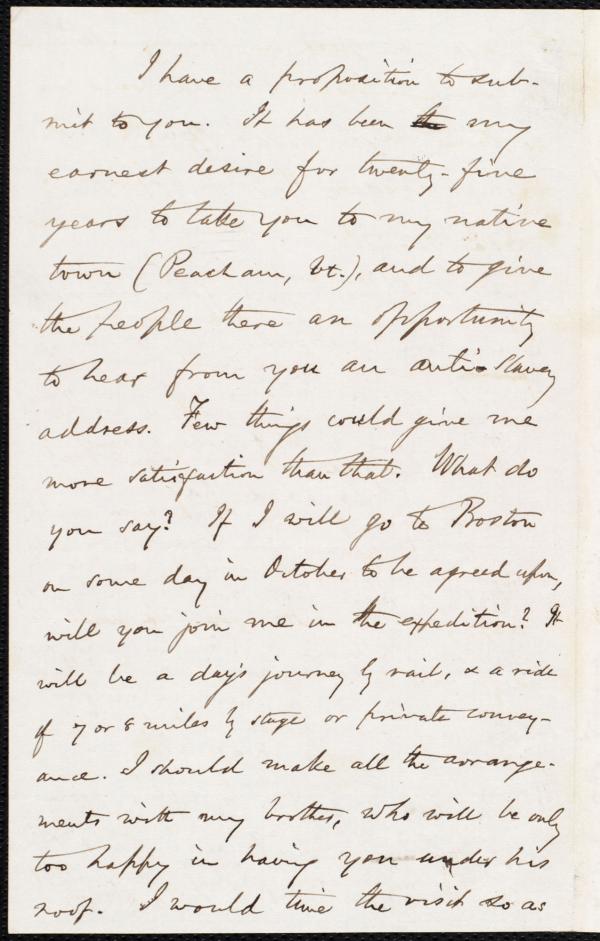 I have a proposition to sub-
mit to you. It has been the my
earnest desire for twenty-five
years to take you to my native
town (Peacham, Vt.), and to give
the people there an opportunity
to hear from you an anti-slavery
address. Few things could give me
more satisfaction than that. What do
you say? If I will go to Boston
on some day in October to be agreed upon,
will you join me in the expedition? It
will be a day's journey by rail, & a ride
of 7 or 8 miles by stage or private convey-
ance. I should make all the arrange-
ments with my brother, who will be only
too happy in having you under his
roof. I would time the visit so as